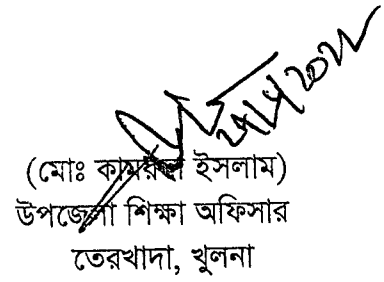 (মোঃ কামরুল ইসলাম)
উপজেলা শিক্ষা অফিসার
তেরখাদা, খুলনা